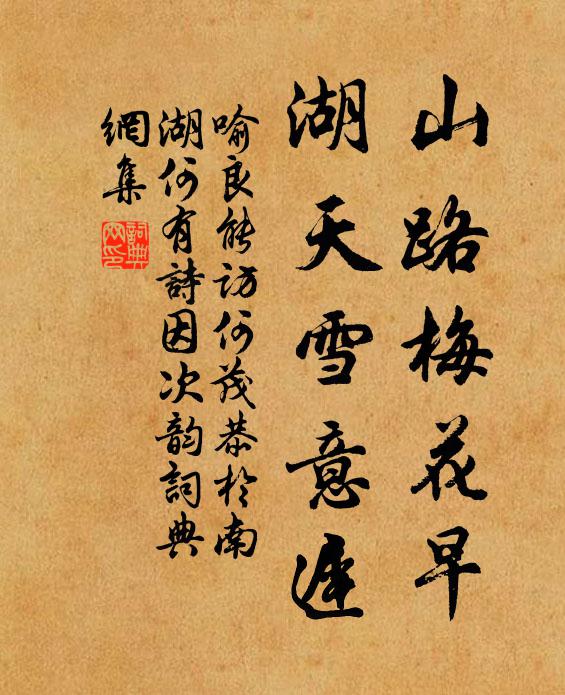 山路梅花早
湖天雪意遲
喻良能訪何茂恭於南
湖何有詩因次韵詞典
網集
詞典
网印